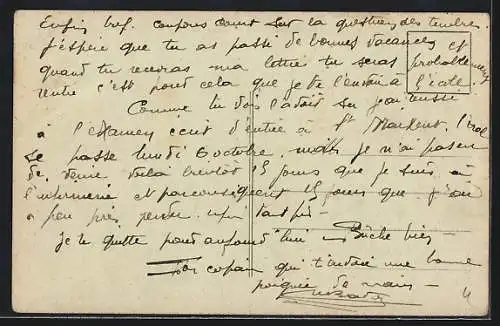 Enfin bref. coupons court sur la question des timbres.
J'espère que tu as passé de bonnes vacances et
quand tu recevras ma lettre tu seras probablement
rentré c'est pour cela que je te l'envoie à l'école.
Comme tu dois l'avoir su j'ai réussi
à l'examen écrit d'entrée à St Maixent. l'oral
se passe lundi 6 octobre, mais je n'ai pas eu
de veine voilà bientôt 15 jours que je suis à
l'infirmerie et par conséquent 15 jours que j'ai
à peu près perdu. enfin tant pis -
Je te quitte pour aujourd'hui - Bûche bien
Ton copain qui t'envoie une bonne
poignée de mains -